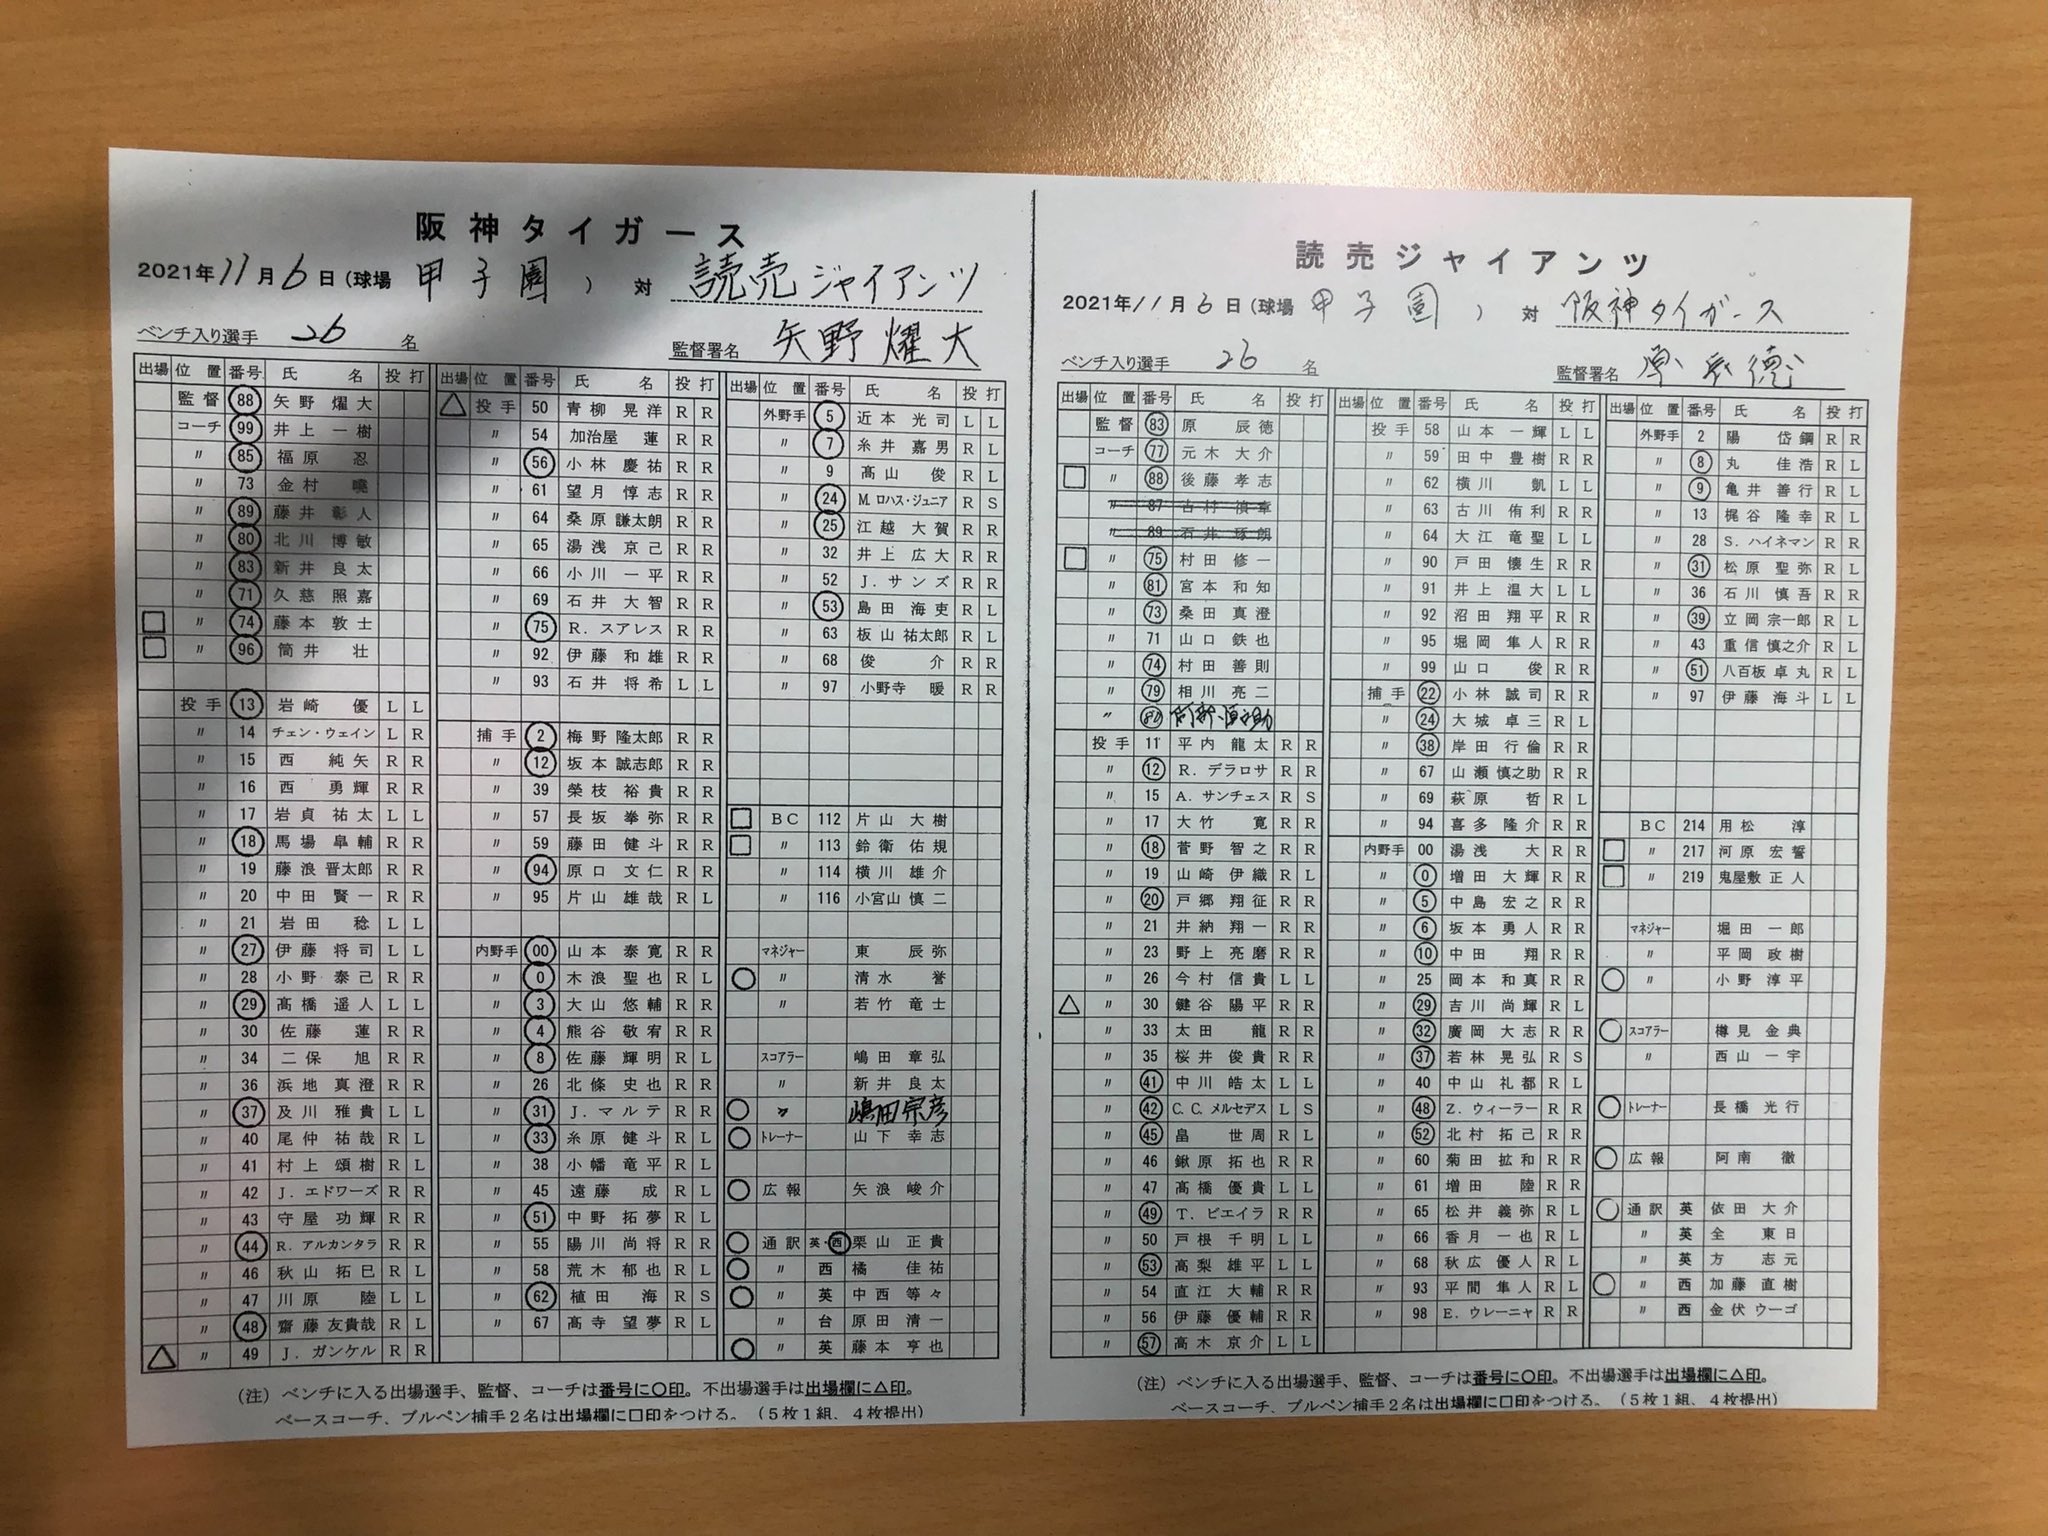 阪神タイガース
2021年11月6日(球場 甲子園 ) 対 読売ジャイアンツ
ベンチ入り選手 26 名 監督署名 矢野燿大
出場 位置 番号 氏名 投 打
監督 88 矢野燿大
コーチ 99 井上一樹
〃 85 福原忍
〃 73 金村曉
〃 89 藤井彰人
〃 80 北川博敏
〃 83 新井良太
〃 71 久慈照嘉
□ 〃 74 藤本敦士
□ 〃 96 筒井壮
投手 13 岩崎優 L L
〃 14 チェン・ウェイン L R
〃 15 西純矢 R R
〃 16 西勇輝 R R
〃 17 岩貞祐太 L L
〃 18 馬場皐輔 R R
〃 19 藤浪晋太郎 R R
〃 20 中田賢一 R R
〃 21 岩田稔 L L
〃 27 伊藤将司 L L
〃 28 小野泰己 R R
〃 29 髙橋遥人 L L
〃 30 佐藤蓮 R R
〃 34 二保旭 R R
〃 36 浜地真澄 R R
〃 37 及川雅貴 L L
〃 40 尾仲祐哉 R L
〃 41 村上頌樹 R L
〃 42 J.エドワーズ R R
〃 43 守屋功輝 R R
〃 44 R.アルカンタラ R R
〃 46 秋山拓巳 R L
〃 47 川原陸 L L
〃 48 齋藤友貴哉 R L
△ 〃 49 J.ガンケル R R
出場 位置 番号 氏名 投 打
△ 投手 50 青柳晃洋 R R
〃 54 加治屋蓮 R R
〃 56 小林慶祐 R R
〃 61 望月惇志 R R
〃 64 桑原謙太朗 R R
〃 65 湯浅京己 R R
〃 66 小川一平 R R
〃 69 石井大智 R R
〃 75 R.スアレス R R
〃 92 伊藤和雄 R R
〃 93 石井将希 L L
捕手 2 梅野隆太郎 R R
〃 12 坂本誠志郎 R R
〃 39 榮枝裕貴 R R
〃 57 長坂拳弥 R R
〃 59 藤田健斗 R R
〃 94 原口文仁 R R
〃 95 片山雄哉 R L
内野手 00 山本泰寛 R R
〃 0 木浪聖也 R L
〃 3 大山悠輔 R R
〃 4 熊谷敬宥 R R
〃 8 佐藤輝明 R L
〃 26 北條史也 R R
〃 31 J.マルテ R R
〃 33 糸原健斗 R L
〃 38 小幡竜平 R L
〃 45 遠藤成 R L
〃 51 中野拓夢 R L
〃 55 陽川尚将 R R
〃 58 荒木郁也 R L
〃 62 植田海 R S
〃 67 高寺望夢 R L
出場 位置 番号 氏名 投 打
外野手 5 近本光司 L L
〃 7 糸井嘉男 R L
〃 9 髙山俊 R L
〃 24 M.ロハス・ジュニア R S
〃 25 江越大賀 R R
〃 32 井上広大 R R
〃 52 J.サンズ R R
〃 53 島田海吏 R L
〃 63 板山祐太郎 R L
〃 68 俊介 R R
〃 97 小野寺暖 R R
□ BC 112 片山大樹
□ 〃 113 鈴衛佑規
〃 114 横川雄介
〃 116 小宮山慎二
マネジャー 東辰弥
○ 〃 清水誉
〃 若竹竜士
スコアラー 嶋田章弘
〃 新井良太
○ 〃 嶋田宗彦
○ トレーナー 山下幸志
○ 広報 矢浪峻介
○ 通訳 英・西 栗山正貴
○ 〃 西 橘佳祐
○ 〃 英 中西等々
〃 台 原田清一
○ 〃 英 藤本亨也
(注) ベンチに入る出場選手、監督、コーチは番号に○印。不出場選手は出場欄に△印。
ベースコーチ、ブルペン捕手2名は出場欄に□印をつける。(5枚1組、4枚提出)
読売ジャイアンツ
2021年11月6日(球場 甲子園 ) 対 阪神タイガース
ベンチ入り選手 26 名 監督署名 原辰徳
出場 位置 番号 氏名 投 打
監督 83 原辰徳
コーチ 77 元木大介
□ 〃 88 後藤孝志
〃 87 吉村禎章
〃 89 石井琢朗
□ 〃 75 村田修一
〃 81 宮本和知
〃 73 桑田真澄
〃 71 山口鉄也
〃 74 村田善則
〃 79 相川亮二
〃 80 阿部慎之助
投手 11 平内龍太 R R
〃 12 R.デラロサ R R
〃 15 A.サンチェス R S
〃 17 大竹寛 R R
〃 18 菅野智之 R R
〃 19 山﨑伊織 R L
〃 20 戸郷翔征 R R
〃 21 井納翔一 R R
〃 23 野上亮磨 R R
〃 26 今村信貴 L L
△ 〃 30 鍵谷陽平 R R
〃 33 太田龍 R R
〃 35 桜井俊貴 R R
〃 41 中川皓太 L L
〃 42 C.C.メルセデス L S
〃 45 畠世周 R L
〃 46 鍬原拓也 R R
〃 47 髙橋優貴 L L
〃 49 T.ビエイラ R R
〃 50 戸根千明 L L
〃 53 高梨雄平 L L
〃 54 直江大輔 R R
〃 56 伊藤優輔 R R
〃 57 高木京介 L L
出場 位置 番号 氏名 投 打
投手 58 山本一輝 L L
〃 59 田中豊樹 R R
〃 62 横川凱 L L
〃 63 古川侑利 R R
〃 64 大江竜聖 L L
〃 90 戸田懐生 R R
〃 91 井上温大 L L
〃 92 沼田翔平 R R
〃 95 堀岡隼人 R R
〃 99 山口俊 R R
捕手 22 小林誠司 R R
〃 24 大城卓三 R L
〃 38 岸田行倫 R R
〃 67 山瀬慎之助 R R
〃 69 萩原哲 R L
〃 94 喜多隆介 R R
内野手 00 湯浅大 R R
〃 0 増田大輝 R R
〃 5 中島宏之 R R
〃 6 坂本勇人 R R
〃 10 中田翔 R R
〃 25 岡本和真 R R
〃 29 吉川尚輝 R L
〃 32 廣岡大志 R R
〃 37 若林晃弘 R S
〃 40 中山礼都 R L
〃 48 Z.ウィーラー R R
〃 52 北村拓己 R R
〃 60 菊田拡和 R R
〃 61 増田陸 R R
〃 65 松井義弥 R L
〃 66 香月一也 R L
〃 68 秋広優人 R L
〃 93 平間隼人 R L
〃 98 E.ウレーニャ R R
出場 位置 番号 氏名 投 打
外野手 2 陽岱鋼 R R
〃 8 丸佳浩 R L
〃 9 亀井善行 R L
〃 13 梶谷隆幸 R L
〃 28 S.ハイネマン R R
〃 31 松原聖弥 R L
〃 36 石川慎吾 R R
〃 39 立岡宗一郎 R L
〃 43 重信慎之介 R L
〃 51 八百板卓丸 R L
〃 97 伊藤海斗 L L
BC 214 用松淳
□ 〃 217 河原宏誓
□ 〃 219 鬼屋敷正人
マネジャー 堀田一郎
〃 平岡政樹
○ 〃 小野淳平
○ スコアラー 樽見金典
〃 西山一宇
○ トレーナー 長橋光行
○ 広報 阿南徹
○ 通訳 英 依田大介
〃 英 全東日
〃 英 方志元
○ 〃 西 加藤直樹
〃 西 金伏ウーゴ
(注) ベンチに入る出場選手、監督、コーチは番号に○印。不出場選手は出場欄に△印。
ベースコーチ、ブルペン捕手2名は出場欄に□印をつける。(5枚1組、4枚提出)